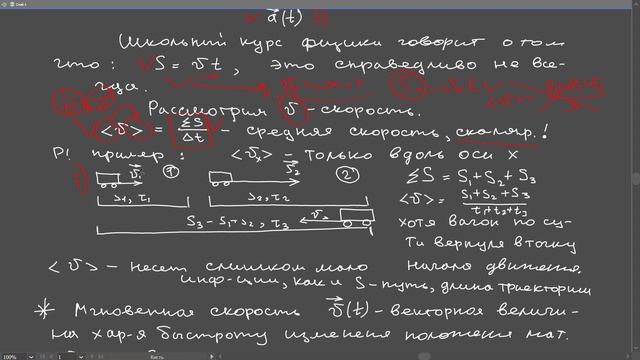 a⃗(t)
Школьный курс физики говорит о том
что: S = vt, это справедливо не все-
гда.
Рассмотрим v - скорость.
<v> = ΣS/Δt - средняя скорость, скаляр!
P! пример: <vₓ> - только вдоль оси x
1) v⃗₁ ① v⃗₂ ② ΣS = S₁+S₂+S₃
S₁, τ₁ S₂, τ₂ <v> = (S₁+S₂+S₃)/(t₁+t₂+t₃)
S₃ = S₁+S₂, τ₃ хотя вагон по су-
ти вернулся в точку
<v> - несет слишком мало начала движения.
инф-ции, как и S-путь, длина траектории
* Мгновенная скорость v⃗(t) - векторная величи-
на хар-я быстроту изменения положения мат.
100% 1 Кисть